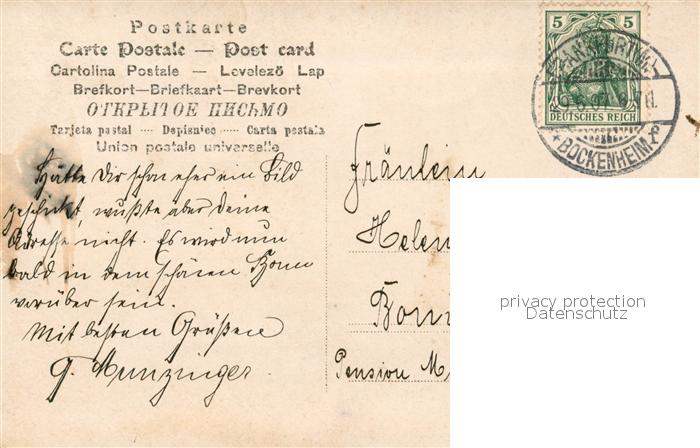 Postkarte
Carte Postale — Post card
Cartolina Postale – Levelező Lap
Brefkort—Briefkaart—Brevkort
ОТКРЫТОЕ ПИСЬМО
Tarjeta postal ···· Dopisniec ···· Carta postala
Union postale universelle
Hätte Dir schon eher ein Bild
geschickt, wußte aber Deine
Adresse nicht. Es wird nun
bald in dem schönen Bonn
vorüber sein.
Mit besten Grüßen
G. Munzinger.
5 5
DEUTSCHES REICH
FRANKFURT(M.)
BOCKENHEIM
Fräulein
Helen
Bonn
Pension M
privacy protection
Datenschutz